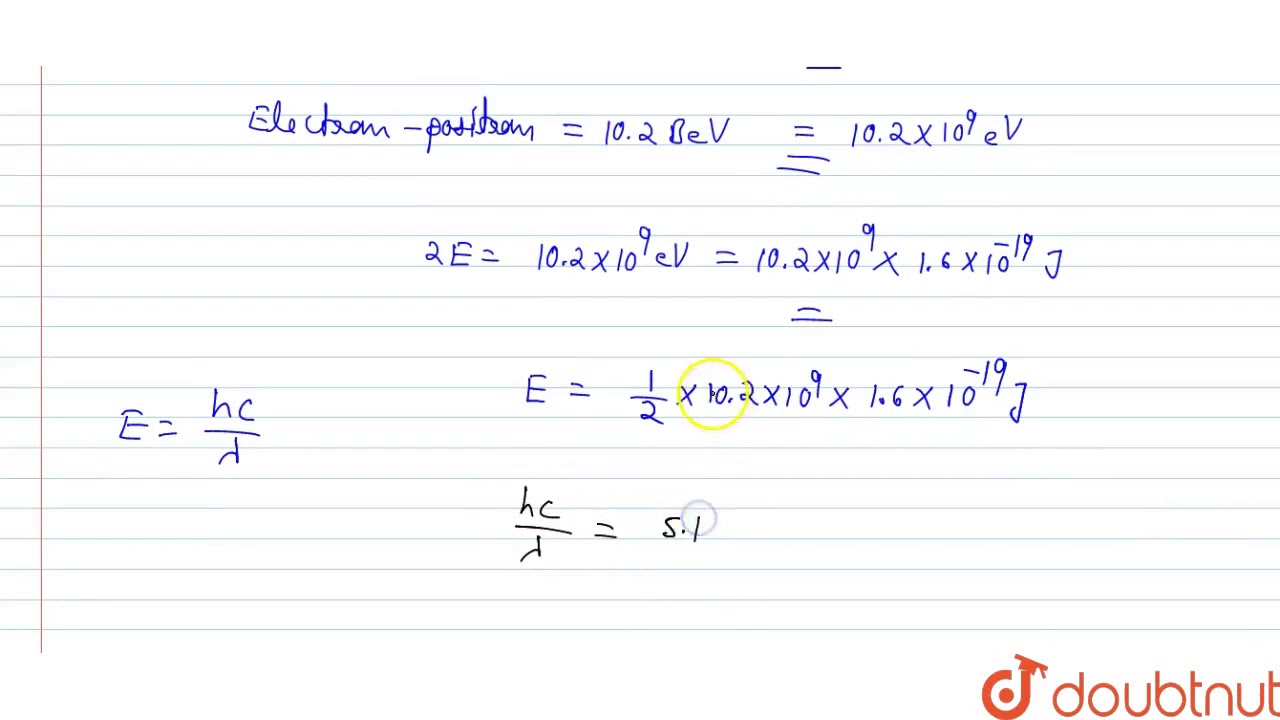 Electron-positron = 10.2 BeV = 10.2 × 10⁹ eV
2E = 10.2 × 10⁹ eV = 10.2 × 10⁹ × 1.6 × 10⁻¹⁹ J
E = hc/λ
E = 1/2 × 10.2 × 10⁹ × 1.6 × 10⁻¹⁹ J
hc/λ = 5.1
doubtnut